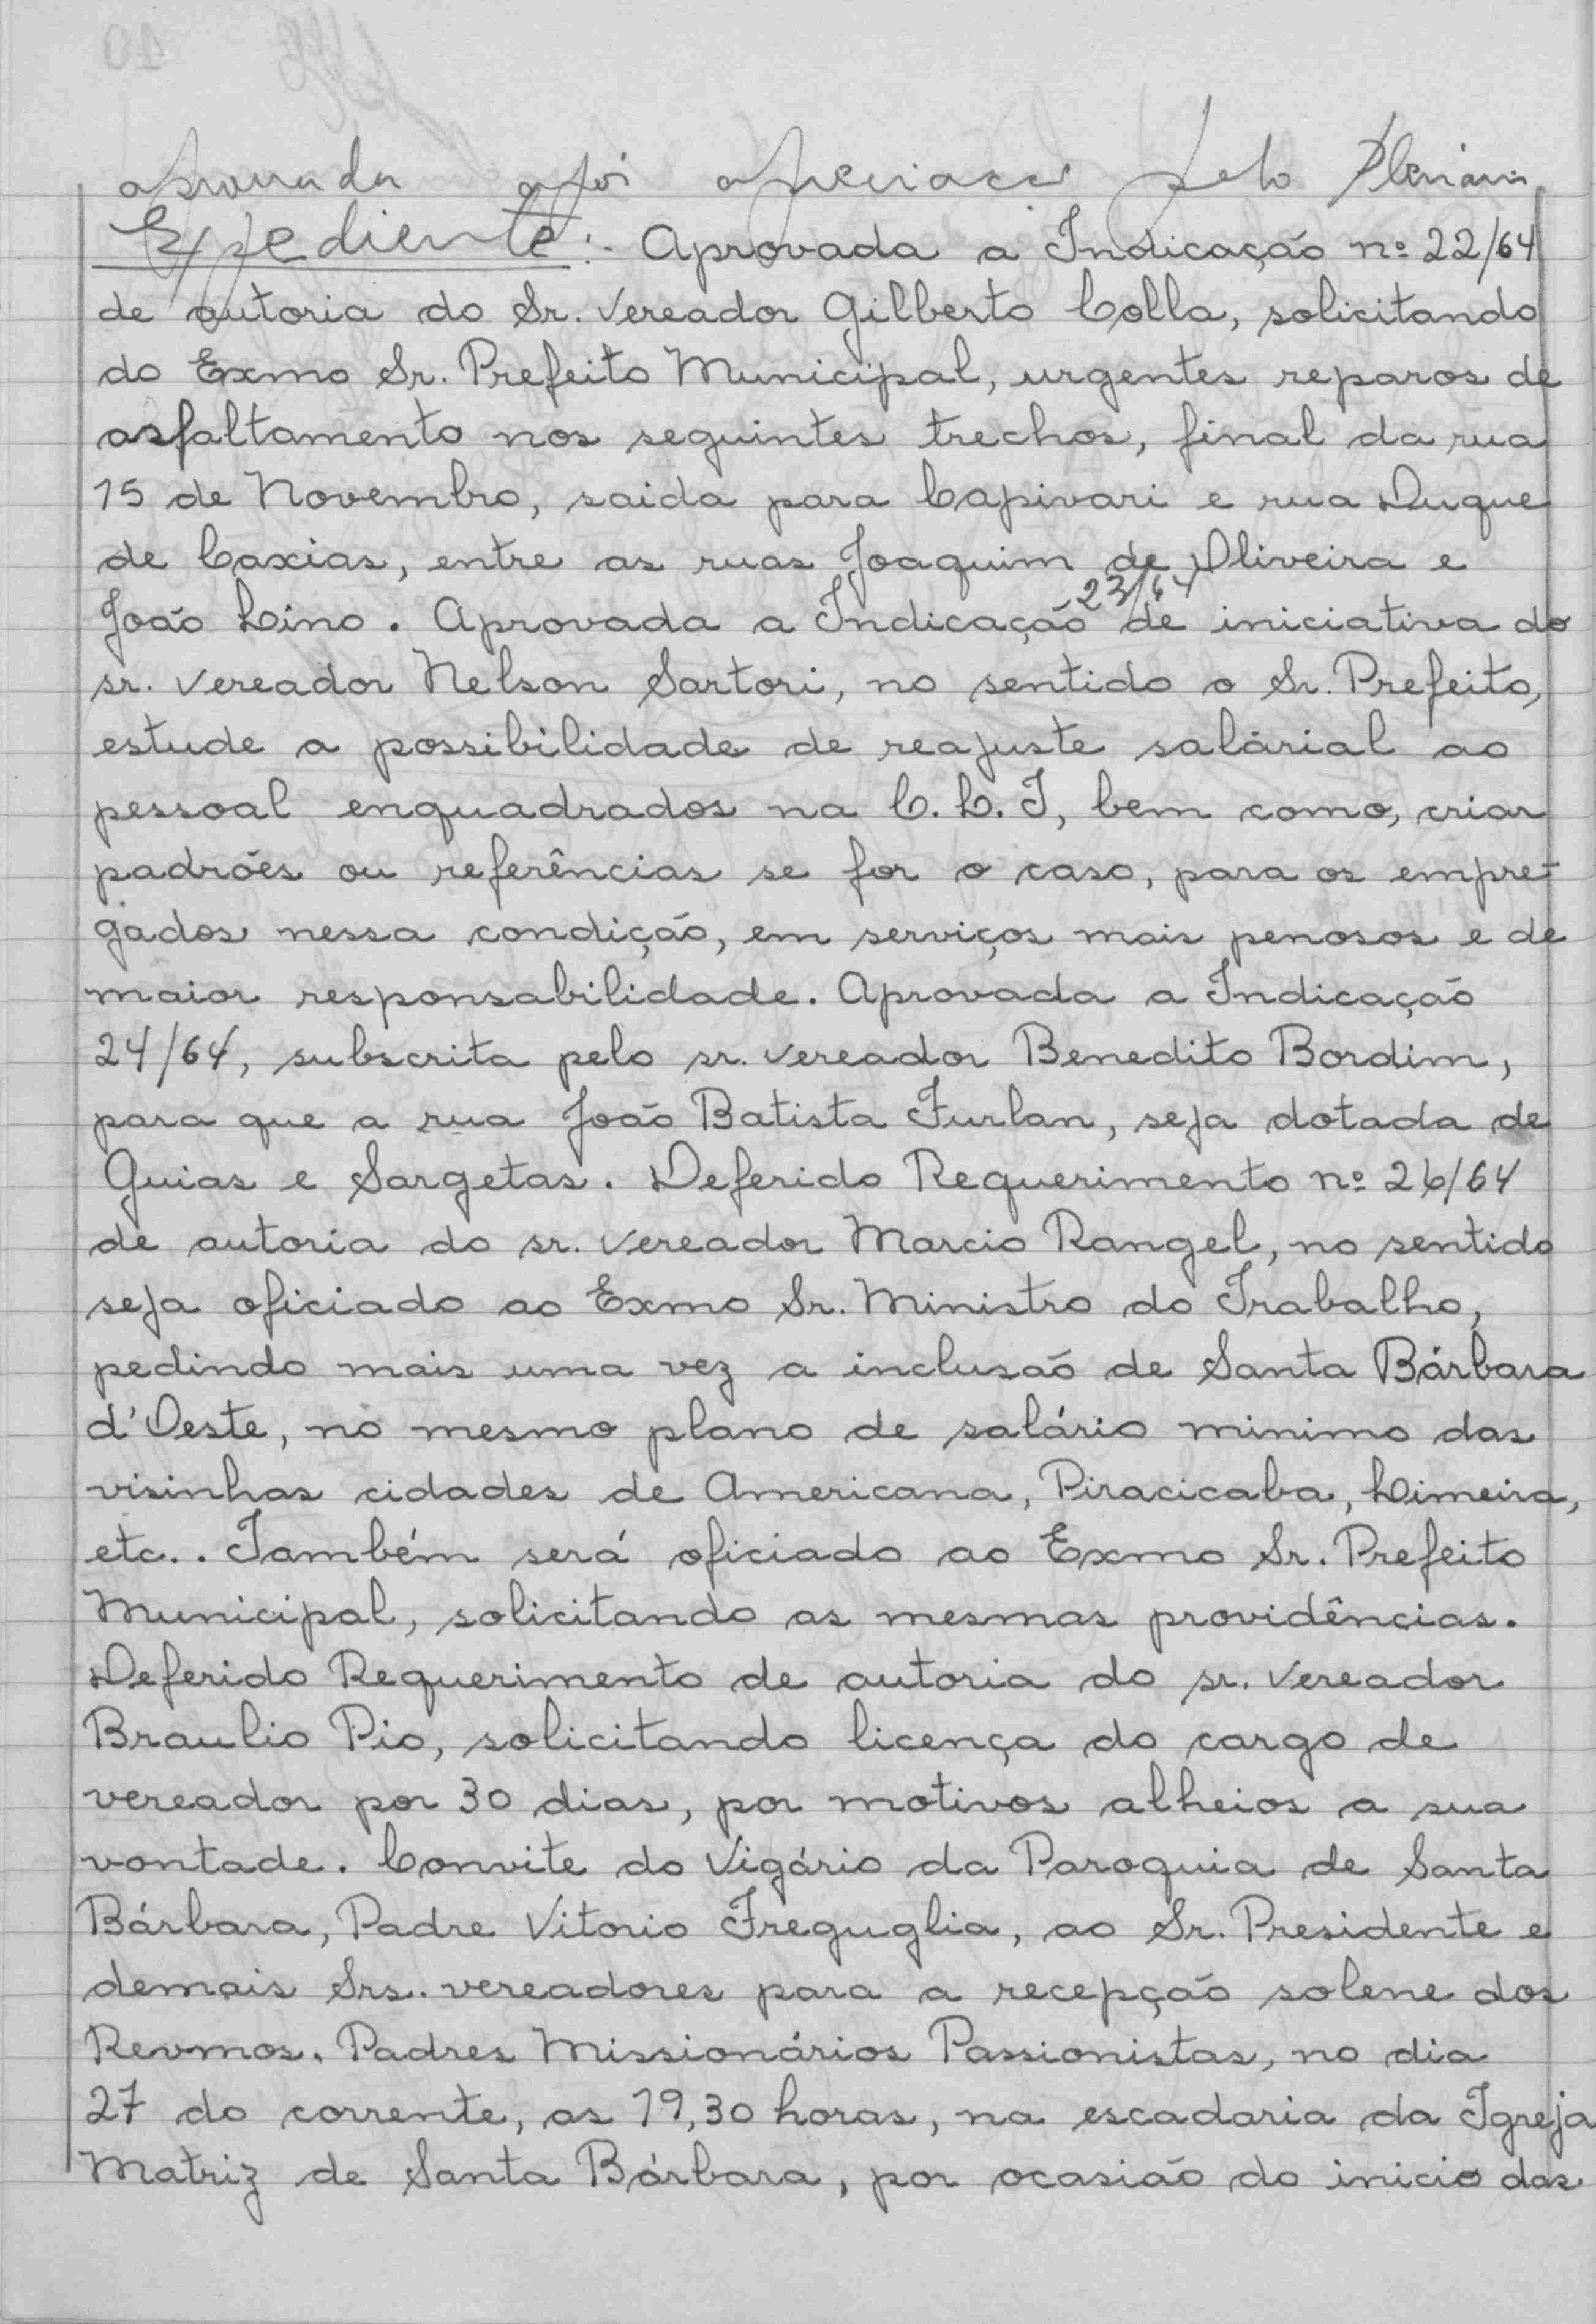 aprovada após apreciação pelo Plenário
Expediente: Aprovada a Indicação nº 22/64
de autoria do Sr. Vereador Gilberto Colla, solicitando
do Exmo Sr. Prefeito Municipal, urgentes reparos de
asfaltamento nos seguintes trechos, final da rua
15 de Novembro, saida para Capivari e rua Duque
de Caxias, entre as ruas Joaquim de Oliveira e
João Lino. Aprovada a Indicação 23/64 de iniciativa do
sr. Vereador Nelson Sartori, no sentido o Sr. Prefeito,
estude a possibilidade de reajuste salárial ao
pessoal enquadrados na C.L.T, bem como, criar
padrões ou referências se for o caso, para os empre-
gados nessa condição, em serviços mais penosos e de
maior responsabilidade. Aprovada a Indicação
24/64, subscrita pelo sr. Vereador Benedito Bordim,
para que a rua João Batista Furlan, seja dotada de
Guias e Sargetas. Deferido Requerimento nº 26/64
de autoria do sr. Vereador Marcio Rangel, no sentido
seja oficiado ao Exmo Sr. Ministro do Trabalho,
pedindo mais uma vez a inclusão de Santa Bárbara
d'Oeste, no mesmo plano de salário minimo das
visinhas cidades de Americana, Piracicaba, Limeira,
etc.. Também será oficiado ao Exmo Sr. Prefeito
Municipal, solicitando as mesmas providências.
Deferido Requerimento de autoria do sr. Vereador
Braulio Pio, solicitando licença do cargo de
vereador por 30 dias, por motivos alheios a sua
vontade. Convite do Vigário da Paroquia de Santa
Bárbara, Padre Vitorio Freguglia, ao Sr. Presidente e
demais Srs. vereadores para a recepção solene dos
Revmos. Padres Missionários Passionistas, no dia
27 do corrente, as 19,30 horas, na escadaria da Igreja
Matriz de Santa Bárbara, por ocasião do inicio das